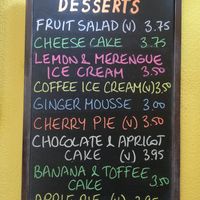 DESSERTS
FRUIT SALAD (V) 3.75
CHEESE CAKE 3.75
LEMON & MERENGUE
ICE CREAM 3.50
COFFEE ICE CREAM (V) 3.50
GINGER MOUSSE 3.00
CHERRY PIE (V) 3.50
CHOCOLATE & APRICOT
CAKE (V) 3.95
BANANA & TOFFEE
CAKE 3.50
APPLE PIE (V) 3.95